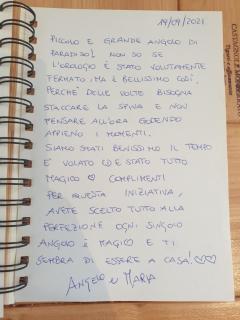 19/09/2021
PICCOLO E GRANDE ANGOLO DI
PARADISO! NON SO SE
L'OROLOGIO È STATO VOLUTAMENTE
FERMATO, MA È BELLISSIMO COSÌ,
PERCHÉ DELLE VOLTE BISOGNA
STACCARE LA SPINA E NON
PENSARE ALL'ORA GODENDO
APPIENO I MOMENTI.
SIAMO STATI BENISSIMO IL TEMPO
È VOLATO ED È STATO TUTTO
MAGICO ♡ COMPLIMENTI
PER QUESTA INIZIATIVA,
AVETE SCELTO TUTTO ALLA
PERFEZIONE OGNI SINGOLO
ANGOLO È MAGICO E TI
SEMBRA DI ESSERE A CASA! ♡♡
ANGELO E MARIA